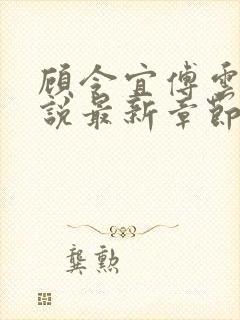 顾令宜傅雲
說最新章節
龔勲